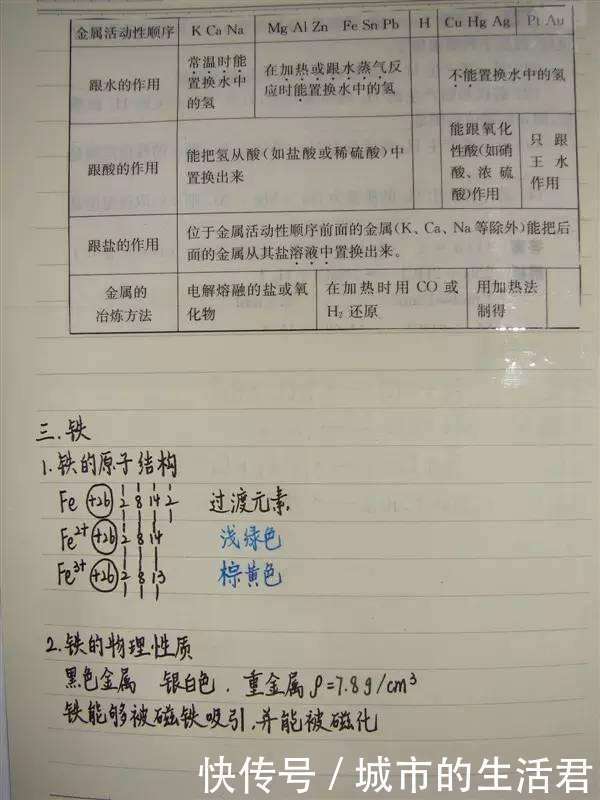 金属活动性顺序 K Ca Na Mg Al Zn Fe Sn Pb H Cu Hg Ag Pt Au
跟水的作用
常温时能
置换水中
的氢
在加热或跟水蒸气反
应时能置换水中的氢
不能置换水中的氢
跟酸的作用
能把氢从酸(如盐酸或稀硫酸)中
置换出来
能跟氧化
性酸(如硝
酸、浓硫
酸)作用
只跟
王水
作用
跟盐的作用
位于金属活动性顺序前面的金属(K、Ca、Na等除外)能把后
面的金属从其盐溶液中置换出来。
金属的
冶炼方法
电解熔融的盐或氧
化物
在加热时用CO或
H₂还原
用加热法
制得
三.铁
1.铁的原子结构
Fe +26 2 8 14 2 过渡元素.
Fe²⁺ +26 2 8 14 浅绿色
Fe³⁺ +26 2 8 13 棕黄色
2.铁的物理性质
黑色金属 银白色. 重金属 ρ=7.8g/cm³
铁能够被磁铁吸引.并能被磁化
快传号/城市的生活君